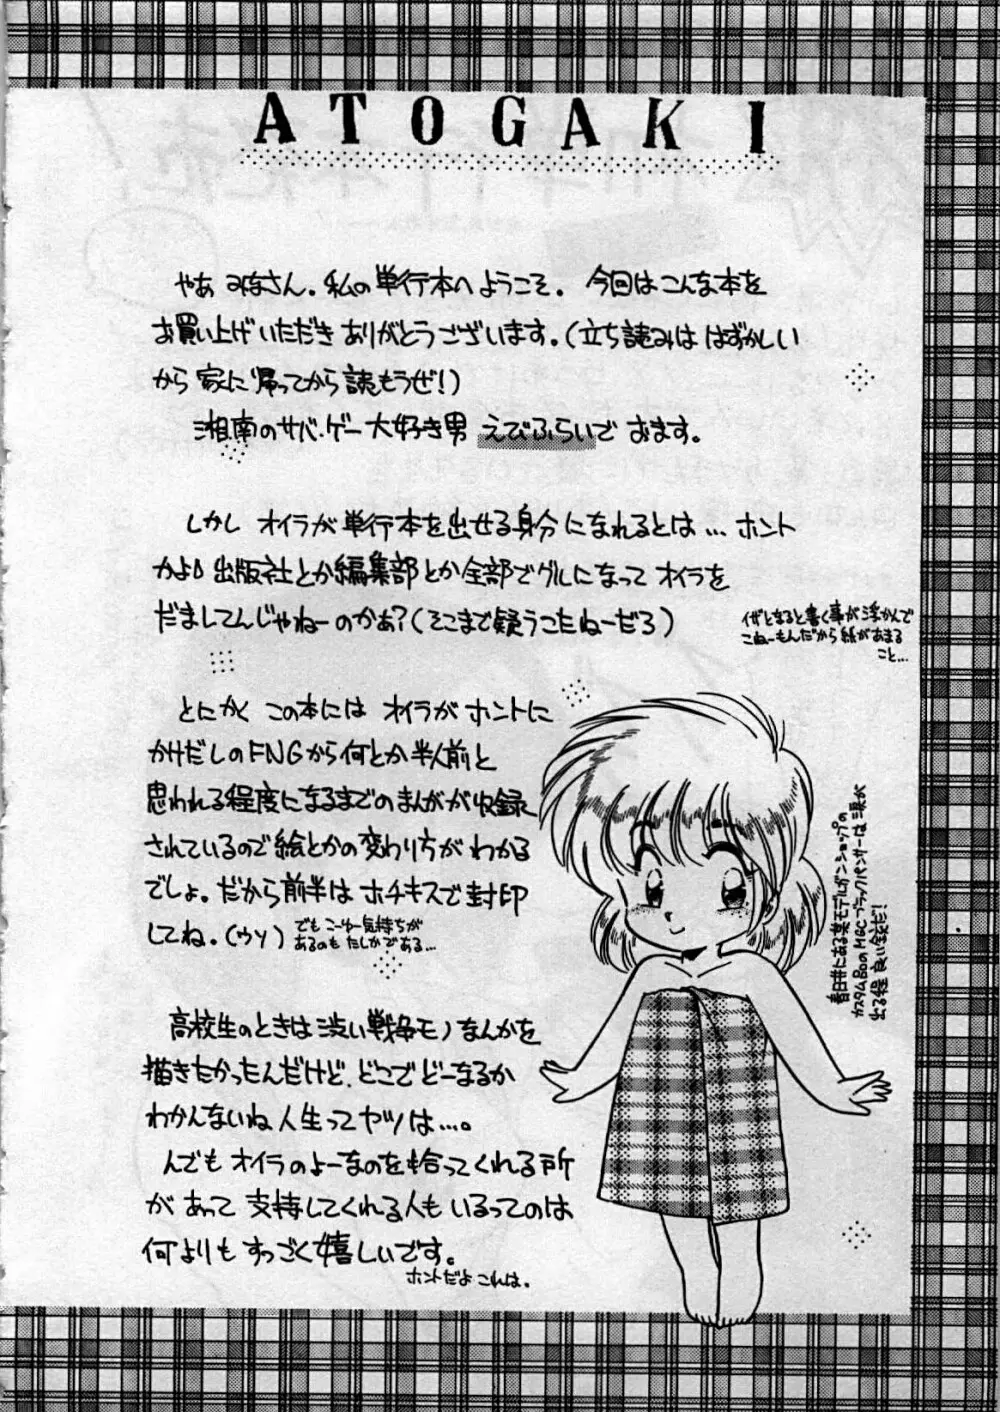 ATOGAKI
やあ みなさん。私の単行本へようこそ。今回はこんな本を
お買い上げいただきありがとうございます。(立ち読みは はずかしい
から 家に帰ってから読もうぜ!)
湘南のサバ・ゲー大好き男 えびふらいで おます。
しかし オイラが単行本を出せる身分になれるとは…ホント
かよ。出版社とか編集部とか全部でグルになって オイラを
だましてんじゃねーのかぁ?(そこまで疑うこたねーだろ)
イザとなると書く事が浮かんで
こねーもんだから紙があまる
こと…
とにかく この本には オイラが ホントに
かけだしのFNGから何とか半人前と
思われる程度になるまでのまんがが収録
されているので絵とかの変わり方が わかる
でしょ。だから前半は ホチキスで封印
してね。(ウソ)
でも こーゆー気持ちが
あるのも たしかである…
春日井にある某モデルガンショップの
カスタムBoのMGCブラックパンサーは 涙が
出る程 良い銃だ!
高校生のときは渋い戦争モノなんかを
描きたかったんだけど、どこで どーなるか
わかんないね 人生ってヤツは…。
んでも オイラのよーなのを拾ってくれる所
が あって 支持してくれる人も いるってのは
何よりも すっごく嬉しいです。
ホントだよ これは。